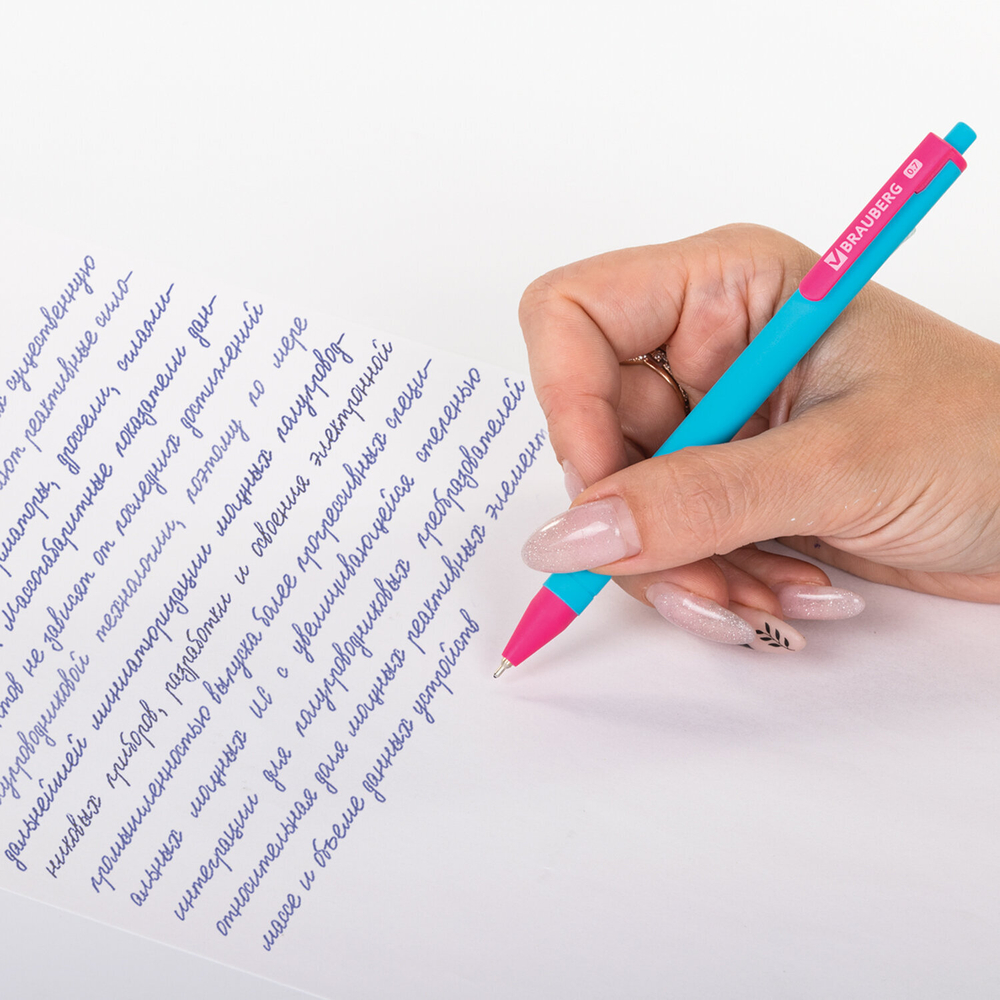 существенную
работ реактивные сило-
рматоры, дроссели, сглажи-
массогабаритные показатели дан-
нтов не зависят от последних достижений
лупроводниковой технологии, поэтому по мере
дальнейшей миниатюризации мощных полупровод-
никовых приборов, разработки и освоения электронной
промышленностью выпуска более прогрессивных специ-
альных мощных ИС с увеличивающейся степенью
интеграции для полупроводниковых преобразователей
относительная для мощных реактивных элемент
массе и объеме данных устройств
BRAUBERG 0.7